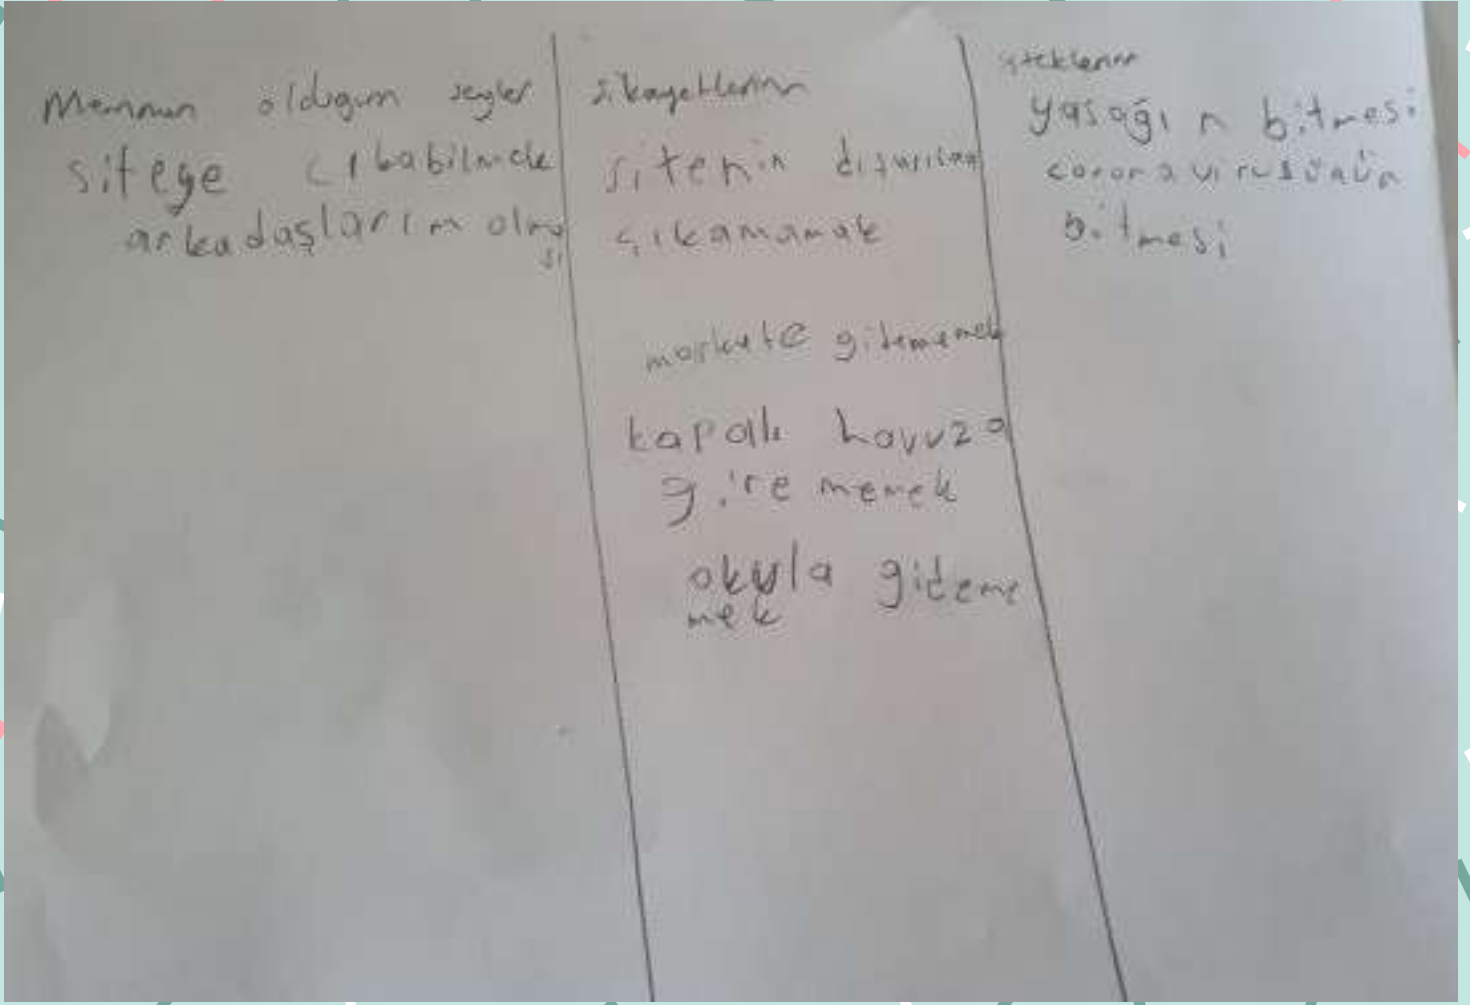 Memnun olduğum şeyler
siteye çıkabilmek
arkadaşlarım olma
sı
şikayetlerim
sitenin dışarısına
çıkamamak
markete gidememek
kapalı havuza
girememek
okula gideme
mek
isteklerim
yasağın bitmesi
coronavirüsünün
bitmesi